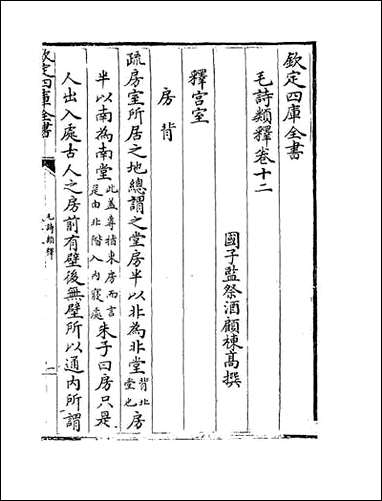 欽定四庫全書
毛詩類釋卷十二
國子監祭酒顧棟髙撰
釋宮室
房背
疏房室所居之地總謂之堂房半以北為北堂背北堂也房
半以南為南堂此葢專指東房而言是由北階入內寢處朱子曰房只是
人出入處古人之房前有壁後無壁所以通內所謂
欽定四庫全書
毛詩類釋
一